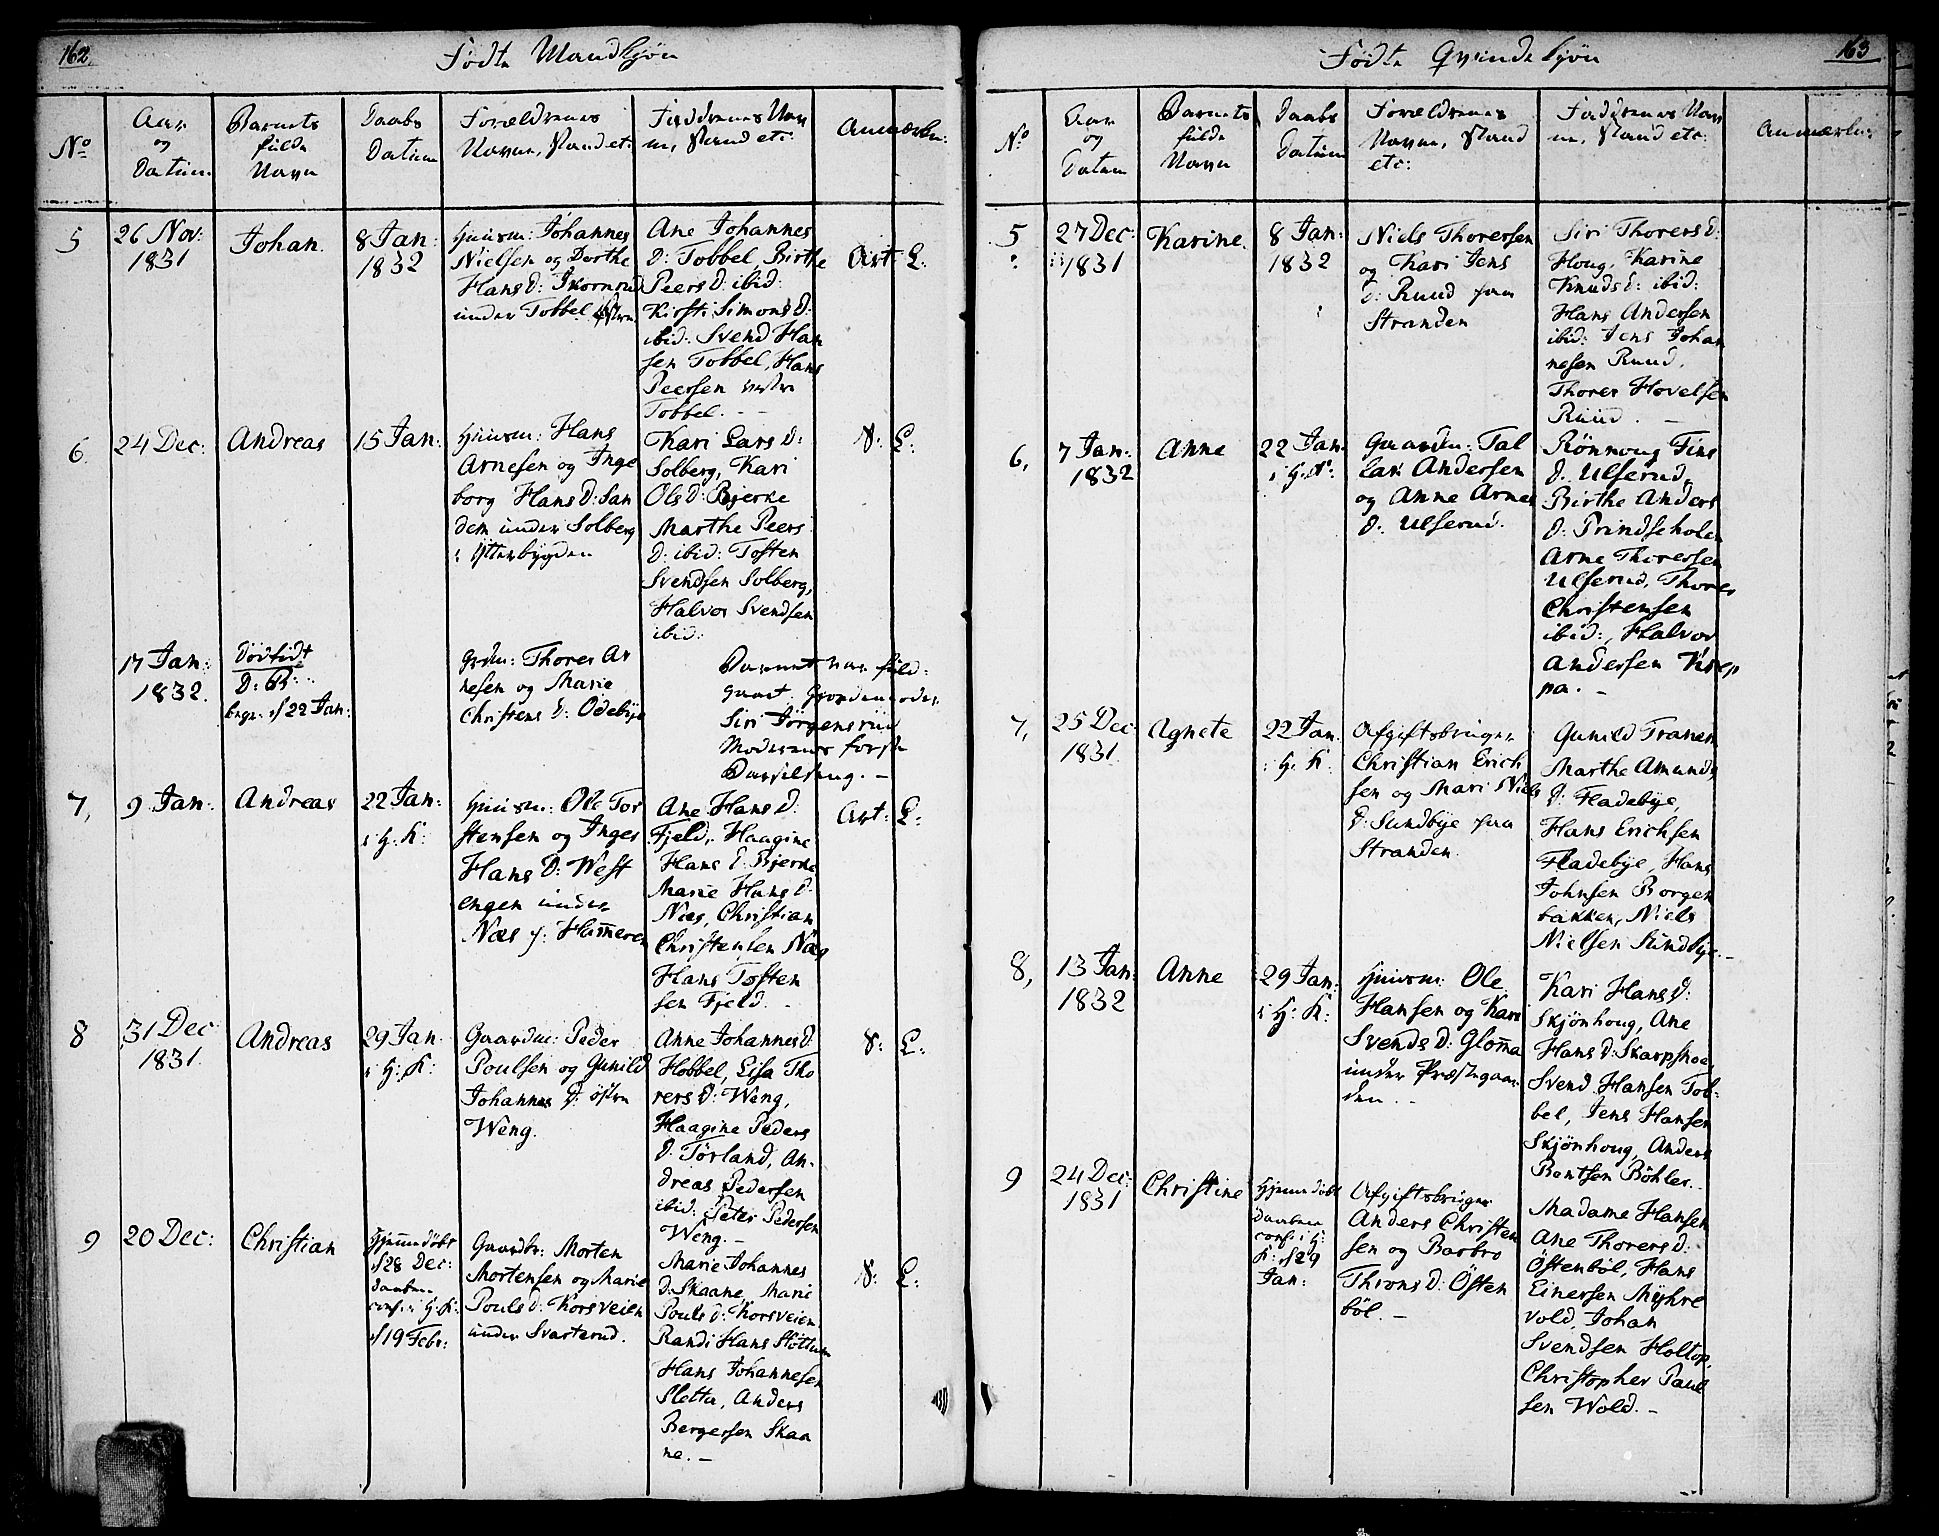 162.
Fødte Mandkjøn
No
Aar
og
Datum
Barnets
fulde
Navn
Daabs
Datum
Forældrenes
Navne, Stand etc:
Faddrenes Nav
ne, Stand etc:
Anmærkn:
5
26 Nov:
1831
Johan
8 Jan:
1832
Huusm: Johannes
Nielsen og Dorthe
Hans D: Skornrud
under Tobbel østre
Ane Johannes
D: Tobbel Birthe
Peers D: ibid:
Kirsti Simons D:
ibid: Svend Han
sen Tobbel, Hans
Peersen vestre
Tobbel. -
L:
6.
24 Dec:
Andreas
15 Jan:
Huusm: Hans
Arnesen og Inge
borg Hans D: San
den under Solberg
i Ytterbygden
Kari Lars D:
Solberg, Kari
Ols D: Bjerke
Marthe Peers
D: ibid: Tosten
Svendsen Solberg,
Halvor Svendsen
ibid:
N: L:
17 Jan:
1832.
Dødfødt
D: B:
begr: d/22 Jan:
Grdm: Thorer Ar
nesen og Marie
Christens D: Odebye
Barnet var fuld-
gaaet. Gjordemoder
Siri Jörgensrud
Moderens første
Barselseng. -
7,
9 Jan:
Andreas
22 Jan:
i H: K:
Huusm: Ole Tor
stensen og Inger
Hans D: West
engen under
Næs f: Ham̅eren
Ane Hans D:
Fjeld, Haagine
Hans D: Bjerke
Marie Hans D:
Næs, Christian
Christensen Næs
Hans Tosten
sen Fjeld. -
Art: L:
8
31 Dec
1831.
Andreas
29 Jan.
i H: K:
Gaardm: Peder
Poulsen og Gunild
Johannes D: østre
Weng.
Anne Johannes D:
Hobbel, Lisa Tho
rers D: Weng,
Haagine Peders
D: Tørland, An-
dreas Pedersen
ibid: Peter Pedersen
Weng. -
N: L:
9
20 Dec:
Christian
Hjemmedøbt
d/28 Dec:
Daaben
conf: i H: K:
d/19 Febr:
Gaardbr: Morten
Mortensen og Marie
Pouls D: Korsveien
under Svarterud.
Marie Johannes
D: Skaane, Marie
Pouls D: Korsveien
Randi Hans Slöttum
Hans Johannesen
Sletta, Anders
Bergersen Skaa
ne. -
N: L:
163
Fødte Qvindekjøn
No
Aar
og
Datum
Barnets
fulde
Navn
Daabs
Datum
Forældrenes
Navne, Stand
etc:
Faddrenes Nav
ne, Stand etc:
Anmærkn:
5
27 Dec:
1831
Karine.
8 Jan:
1832
Niels Thoressen
og Kari Jens
D: Ruud paa
Stranden
Siri Thorers D:
Houg, Karine
Knuds D: ibid:
Hans Andersen
ibid: Jens Johan
nesen Ruud,
Thorer Hovelsen
Ruud. -
6,
7 Jan:
1832
Anne
22 Jan.
i H: K:
Gaardm: Tal
lak Andersen
og Anne Arnes
D: Ulserud.
Rönnoug Fins
D: Ulserud,
Birthe Anders
D: Prindsehole
Arne Thoressen
Ulserud, Thorer
Christensen
ibid:, Halvor
Andersen Krep
pa. -
7,
25 Dec
1831.
Agnete
22 Jan.
i H: K.
Afgiftsbruger
Christian Erich
sen og Mari Niels
D: Sundbye paa
Stranden.
Gunild Tranen
Marthe Amunds
D: Fladebye,
Hans Erichsen
Fladebye, Hans
Johnsen Borgen
bakken, Niels
Nielsen Sundbye. -
8,
13 Jan:
1832
Anne
29 Jan:
i H: K:
Huusm: Ole
Hansen og Kari
Svends D: Glom̅a
under Præstegaar
den. -
Kari Hans D:
Skjönhoug, Ane
Hans D: Skarpsnoe
Svend Hansen Tob-
bel, Jens Hansen
Skjönhoug, Anders
Bentsen Böhler. -
9
24 Dec:
1831
Christine
Hjemmedøbt
Daaben
conf: i H:
K: d/29
Jan:
Afgiftsbruger
Anders Christen
sen og Barbro
Throns D: Östen
böl. -
Madame Hansen
Ane Thorers D:
Östenböl, Hans
Einersen Myhre
vold, Johan
Svendsen Holtop,
Christopher Paul
sen Wold. -